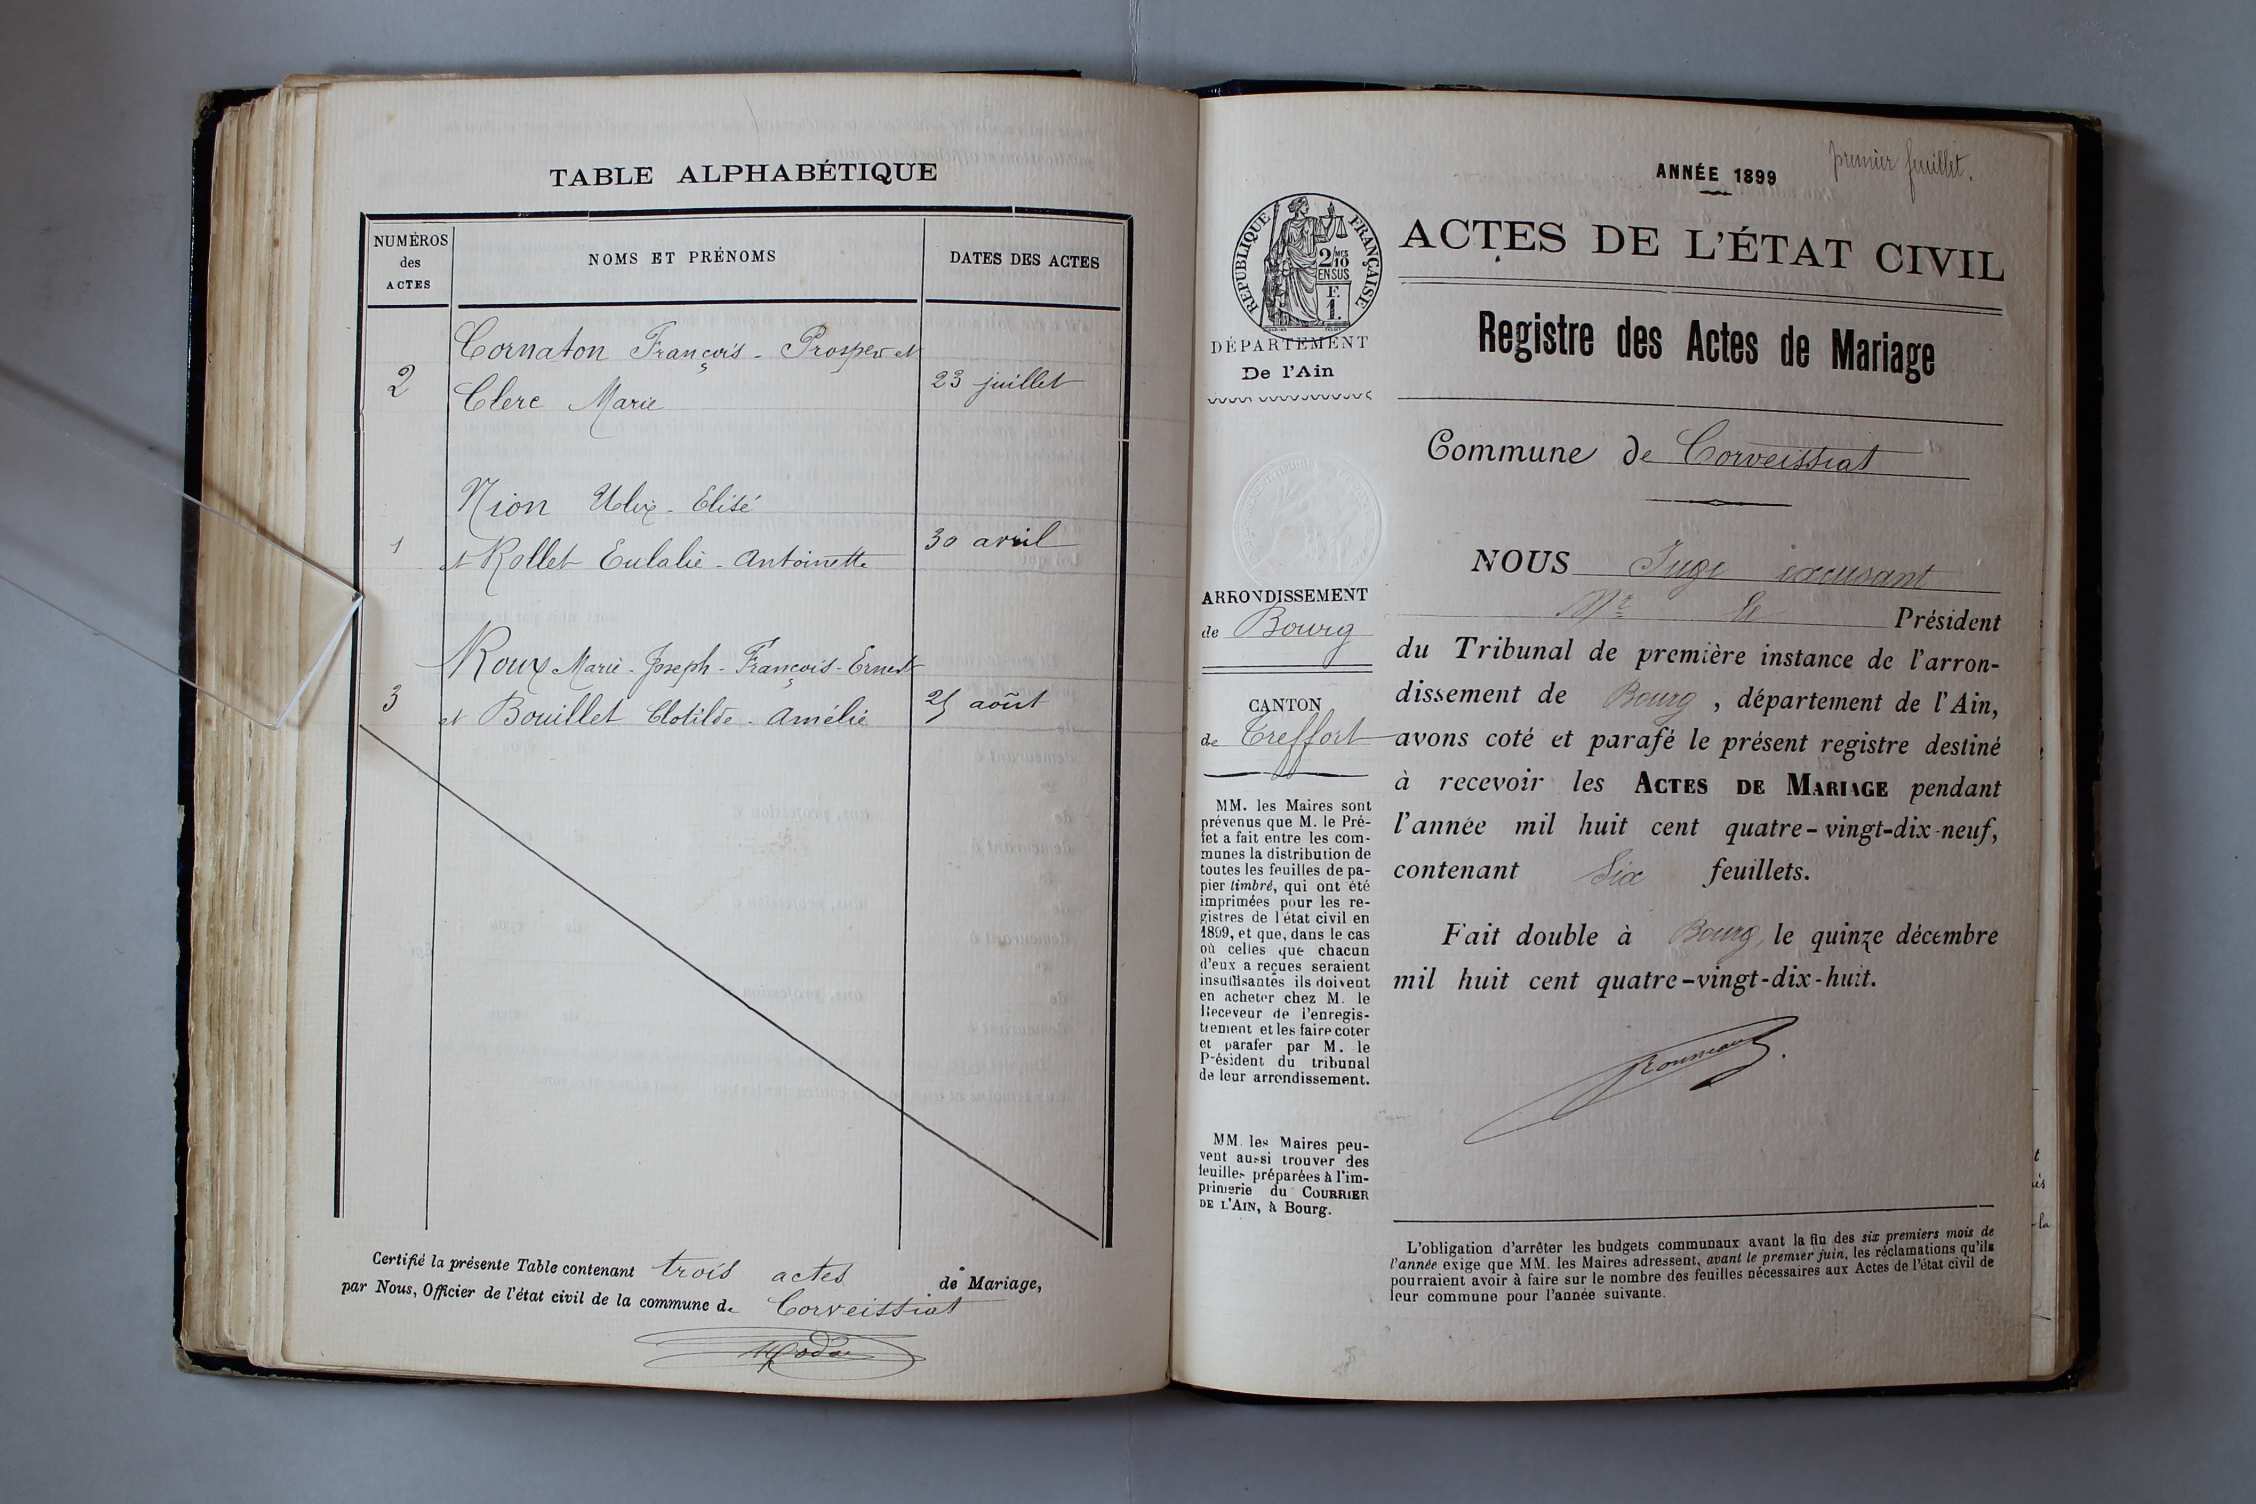 TABLE ALPHABÉTIQUE
NUMÉROS
des
ACTES
NOMS ET PRÉNOMS
DATES DES ACTES
Cornaton François - Prosper et
2
Clerc Marie
23 juillet
Nion Ulix - Elisé
1
et Rollet Eulalie - Antoinette
30 avril
Roux Marie - Joseph - François - Ernest
3
et Bouillet Clotilde - Amélie
25 août
Certifié la présente Table contenant trois actes de Mariage,
par Nous, Officier de l'état civil de la commune de Corveissiat
premier feuillet.
ANNÉE 1899
ACTES DE L'ÉTAT CIVIL
Registre des Actes de Mariage
Commune de Corveissiat
RÉPUBLIQUE FRANÇAISE
2/10 MES
EN SUS
F.
1.
DÉPARTEMENT
De l'Ain
ARRONDISSEMENT
de Bourg
CANTON
de Treffort
MM. les Maires sont
prévenus que M. le Pré-
fet a fait entre les com-
munes la distribution de
toutes les feuilles de pa-
pier timbré, qui ont été
imprimées pour les re-
gistres de l'état civil en
1899, et que, dans le cas
où celles que chacun
d'eux a reçues seraient
insuffisantes ils doivent
en acheter chez M. le
Receveur de l'enregis-
trement et les faire coter
et parafer par M. le
Président du tribunal
de leur arrondissement.
MM. les Maires peu-
vent aussi trouver des
feuilles préparées à l'im-
primerie du COURRIER
DE L'AIN, à Bourg.
NOUS Juge excusant
Mr le Président
du Tribunal de première instance de l'arron-
dissement de Bourg, département de l'Ain,
avons coté et parafé le présent registre destiné
à recevoir les ACTES DE MARIAGE pendant
l'année mil huit cent quatre-vingt-dix-neuf,
contenant Six feuillets.
Fait double à Bourg, le quinze décembre
mil huit cent quatre-vingt-dix-huit.
L'obligation d'arrêter les budgets communaux avant la fin des six premiers mois de
l'année exige que MM. les Maires adressent, avant le premier juin, les réclamations qu'ils
pourraient avoir à faire sur le nombre des feuilles nécessaires aux Actes de l'état civil de
leur commune pour l'année suivante.